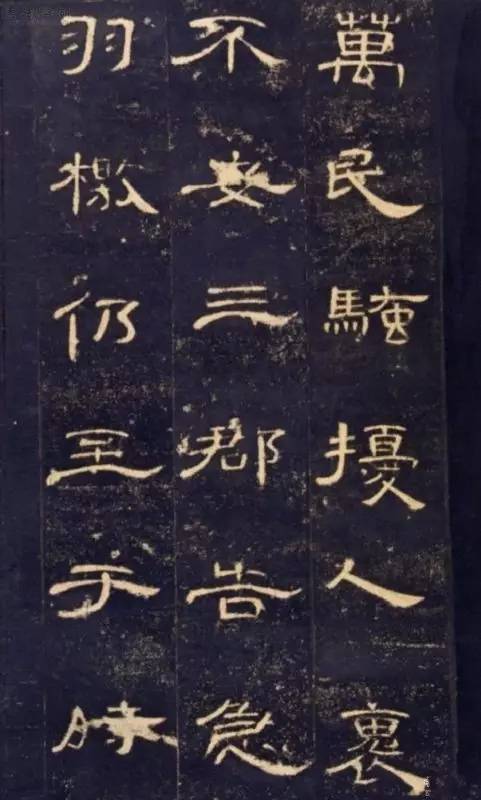 萬民騷擾人褱
不安三郡告急
羽檄仍至于時